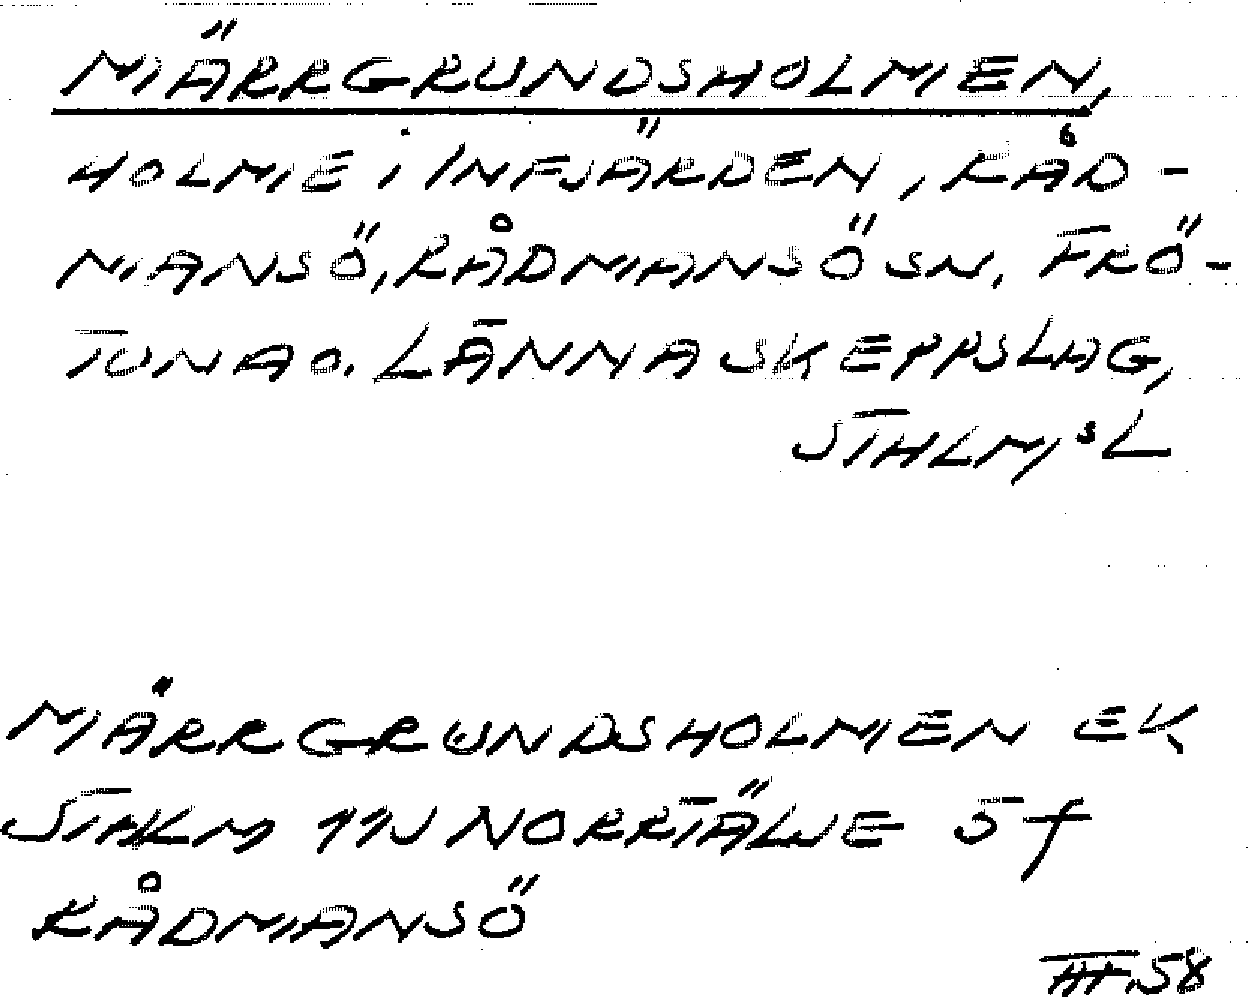 MÄRRGRUNDSHOLMEN,
HOLME i INFJÄRDEN, RÅD-
MANSÖ, RÅDMANSÖ SN. FRÖ-
TUNA O. LÄNNA SKEPPSLAG,
STHLM,S L
MÄRRGRUNDSHOLMEN EK
STHLM 11N NORRTÄLJE 5 f
RÅDMANSÖ
58